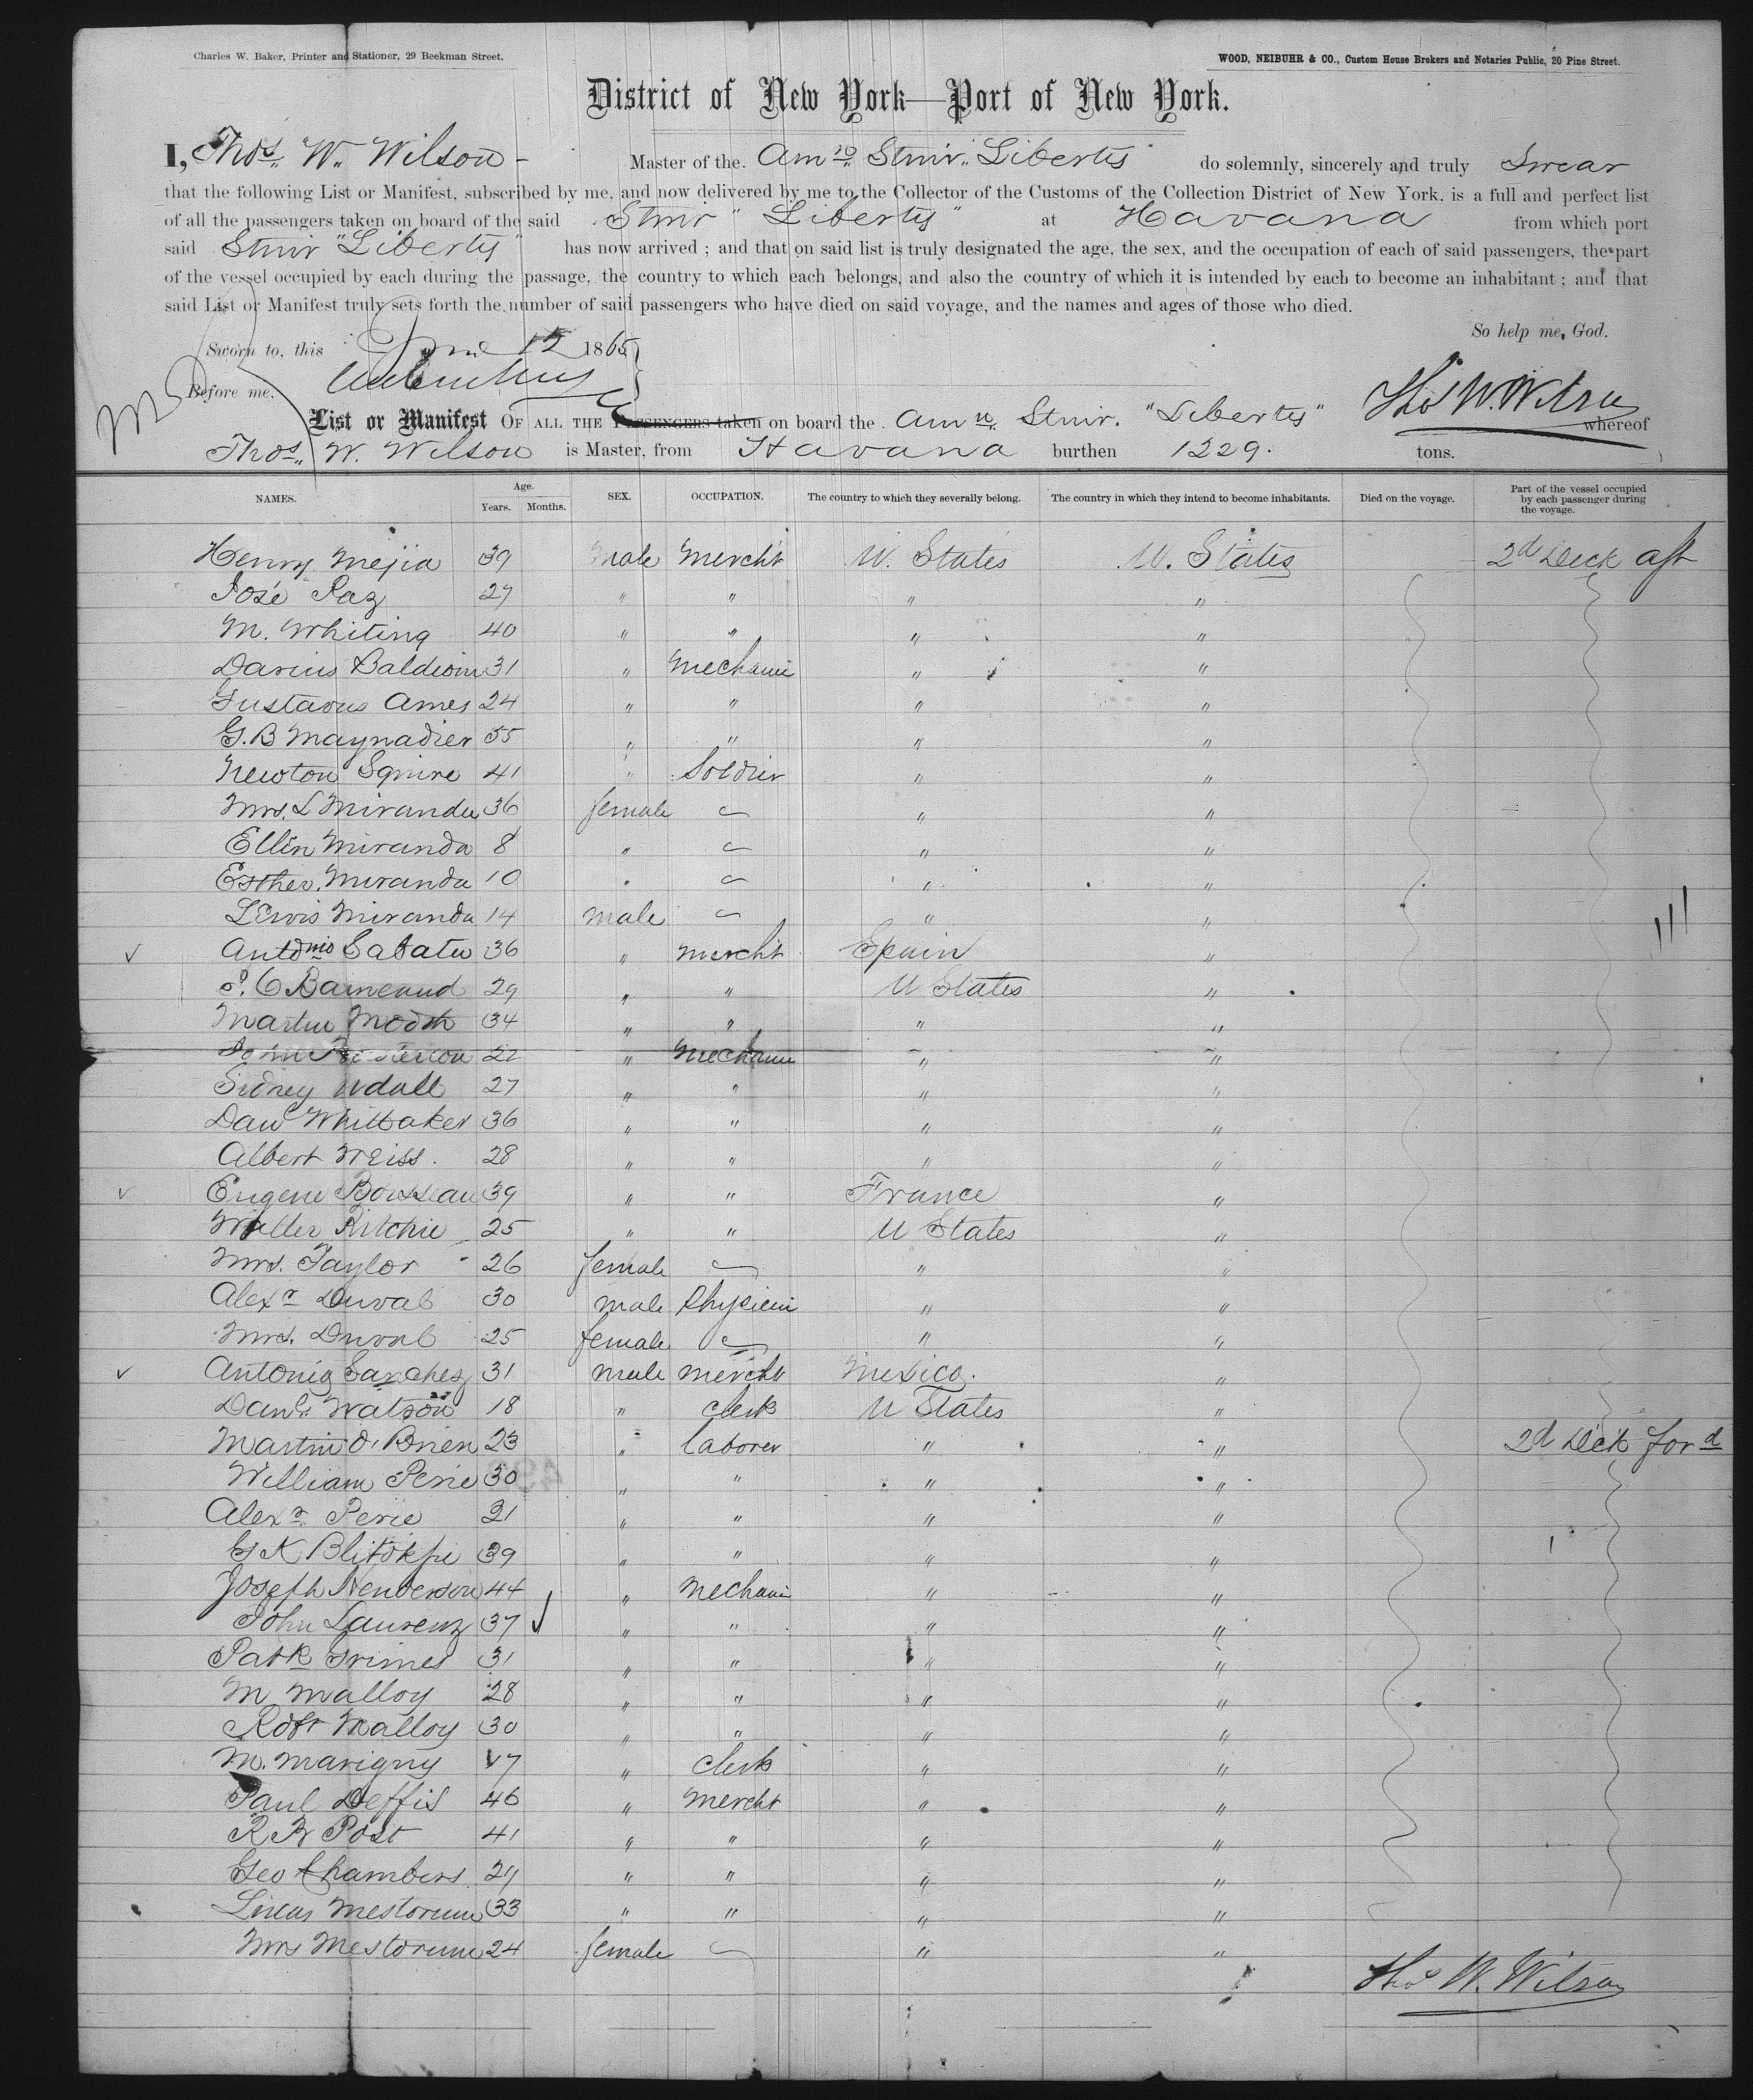 Charles W. Baker, Printer and Stationer, 29 Beekman Street.
WOOD, NEIBUHR & CO., Custom House Brokers and Notaries Public, 20 Pine Street.
District of New York—Port of New York.
I, Thos. W. Wilson - Master of the Amn Stmr. Liberty do solemnly, sincerely and truly Swear
that the following List or Manifest, subscribed by me, and now delivered by me to the Collector of the Customs of the Collection District of New York, is a full and perfect list
of all the passengers taken on board of the said Stmr "Liberty" at Havana from which port
said Stmr "Liberty" has now arrived ; and that on said list is truly designated the age, the sex, and the occupation of each of said passengers, the part
of the vessel occupied by each during the passage, the country to which each belongs, and also the country of which it is intended by each to become an inhabitant ; and that
said List or Manifest truly sets forth the number of said passengers who have died on said voyage, and the names and ages of those who died.
So help me, God.
Sworn to, this June 12 1865
Before me,
Thos W. Wilson
List or Manifest OF ALL THE PASSENGERS taken on board the Amn. Stmr. "Liberty" whereof
Thos. W. Wilson is Master, from Havana burthen 1229. tons.
NAMES. Age. Years. Months. SEX. OCCUPATION. The country to which they severally belong. The country in which they intend to become inhabitants. Died on the voyage. Part of the vessel occupied by each passenger during the voyage.
Henry Mejia 39 Male Mercht U. States U. States 2d Deck aft
José Paz 27 " " " "
M. Whiting 40 " " " "
Darius Baldwin 31 " Mechanic " "
Gustavus Ames 24 " " " "
G. B Maynadier 55 " " " "
Newton Squire 41 " Soldier " "
Mrs. L Miranda 36 female " "
Ellen Miranda 8 " " "
Esther Miranda 10 " " "
Lewis Miranda 14 male " "
Antonio Sabate 36 " mercht Spain "
29 " " U States "
Martin 34 " " " "
John 22 " Mechanic " "
Sidney Udall 27 " " " "
Danl Whittaker 36 " " " "
Albert Weiss. 28 " " " "
Eugene Bousseau 39 " " France "
Walter Ritchie 25 " " U States "
Mrs. Taylor 26 female " "
Alexr Duval 30 male Physician " "
Mrs. Duval 25 female " "
Antonio Sanchez 31 male mercht Mexico. "
Danl. Watson 18 " clerk U States "
Martin O'Brien 23 " laborer " " 2d Deck ford
William Perie 30 " " " "
Alexr. Perie 21 " " " "
39 " " " "
Joseph Henderson 44 " Mechanic " "
John Laurenz 37 " " " "
Patk Grimes 31 " " " "
M Malloy 28 " " " "
Robt Malloy 30 " " " "
M. Marigny 17 " clerk " "
Paul Deffis 46 " Mercht " "
Post 41 " " " "
Geo Chambers. 29 " " " "
Lucas Mestorum 33 " " " "
Mrs Mestorum 24 female " "
Thos W. Wilson